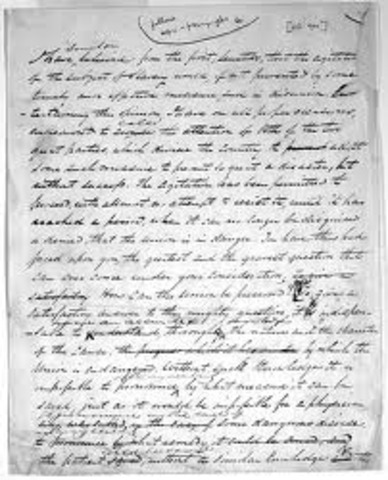 Senators
I have believed from the first, that the agitation
of the subject of slavery would, if not prevented by some
timely and effective measure, end in disunion.
tertaining this opinion, I have on all proper occasions,
endeavored to the attention of both of the two
great parties, which divide the country, to adopt
some such measure to prevent so great a disaster, but
without success. The agitation has been permitted to
proceed, with almost no attempt to resist it, until it has
reached a point, when it can no longer be disguised
or denied, that the Union is in danger. You have thus had
forced upon you the greatest and the gravest question that
can ever come under your consideration,
How can the Union be preserved? To give a
satisfactory answer to this mighty question, it is indispen-
sable to the nature and the character
of the cause, by which the
Union is endangered. Without such knowledge it is
impossible to pronounce by what measure it can be
saved, just as it would be impossible for a physician
some dangerous disease,
to pronounce by what remedy it could be
the patient without similar knowledge